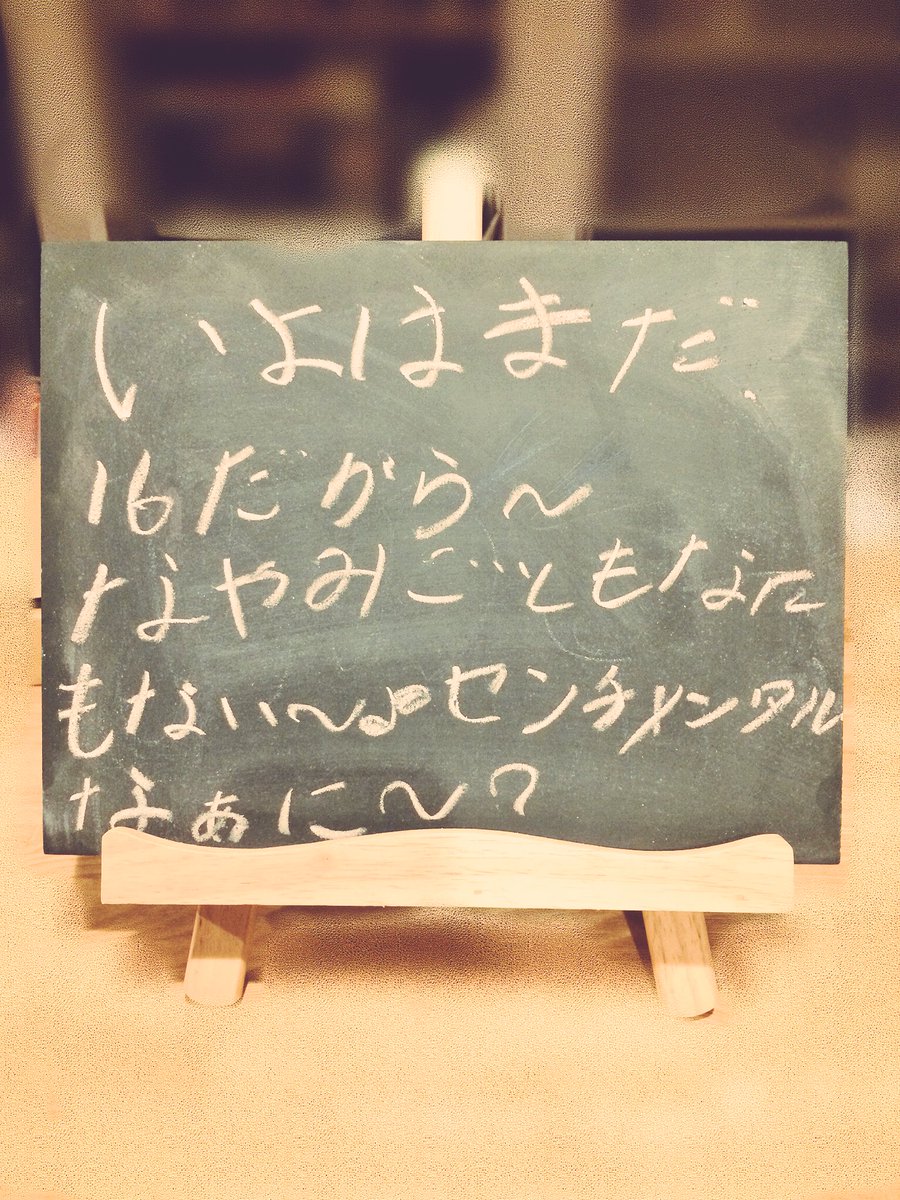 いよはまだ
16だから〜
なやみごともなに
もない〜♪センチメンタル
なぁに〜?